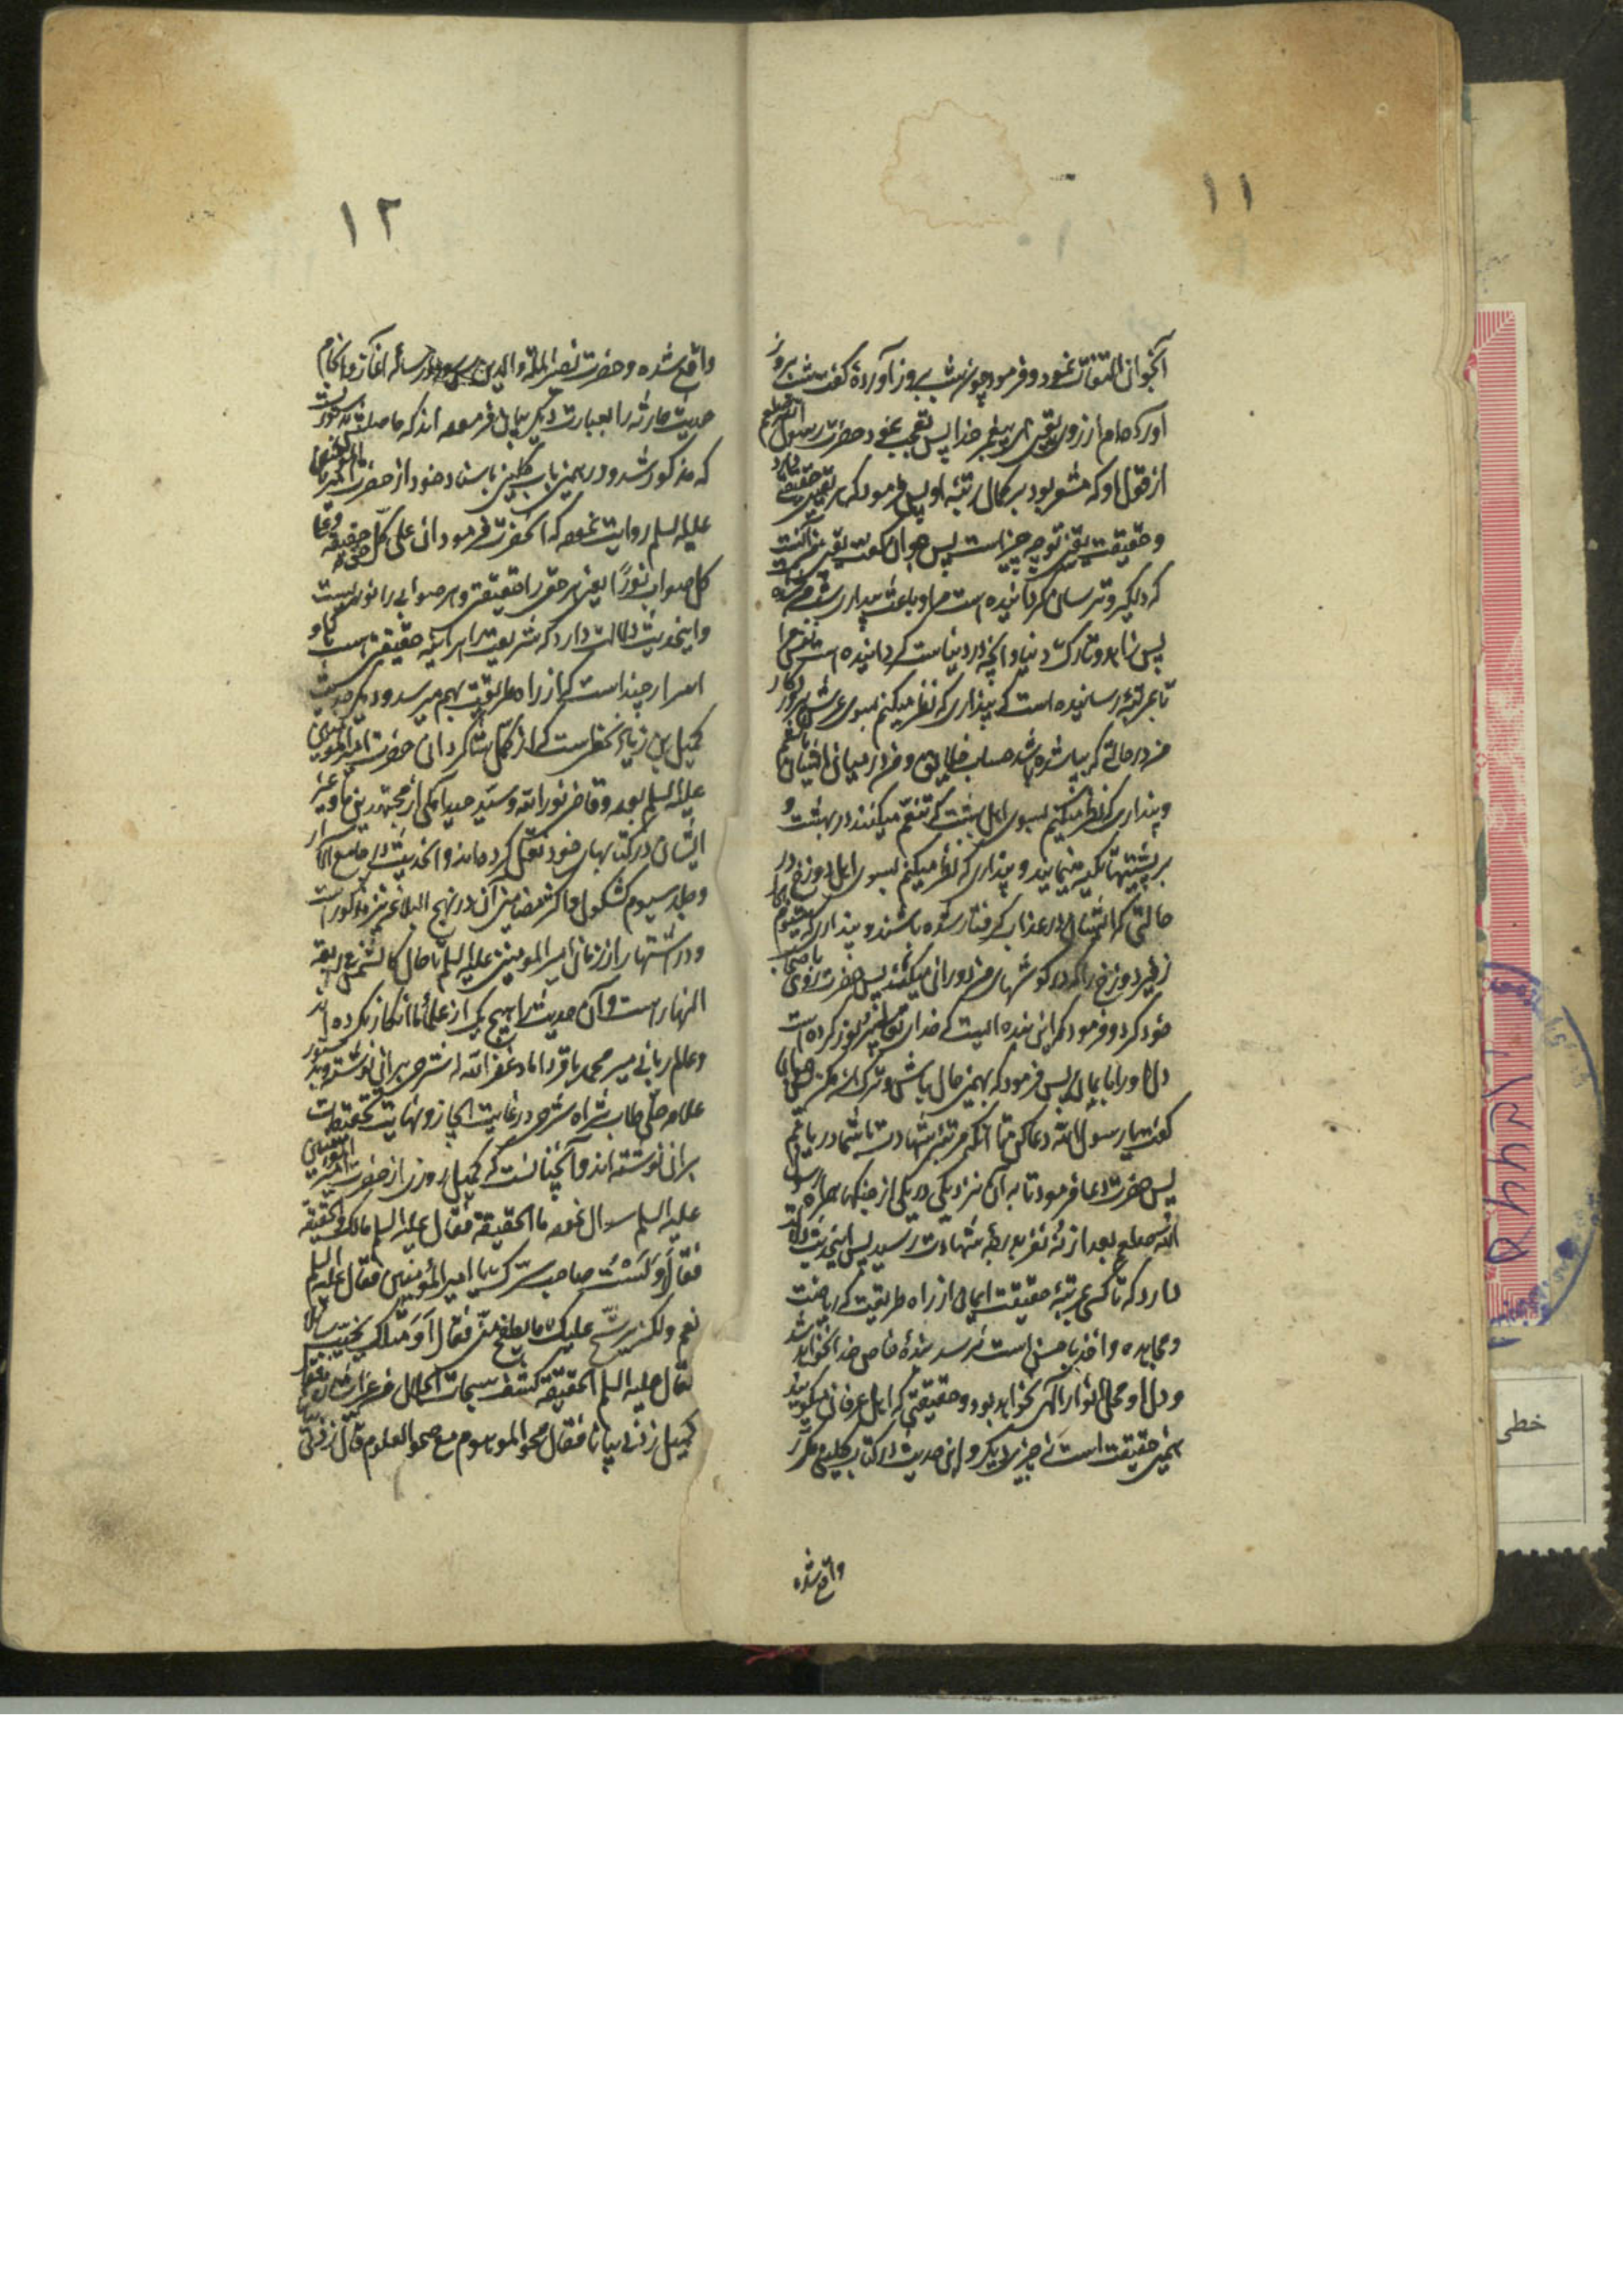 ۱۱
آنجوان التفات نمود و فرمود چون شب بروز آوردهٔ گفت شب بروز
آورده‌ام از روی یقین ای پیغمبر خدا پس تعجب نمود حضرت رسول الله صلعم
از قول او که مشعر بود بر کمال رتبهٔ او پس فرمود که هر یقینی حقیقتی دارد
و حقیقت یقین تو چه چیز است پس جوان گفت یقین من آنست
که دلگیر و ترسان گردانیده است مرا و باعث بیداری شب من شده
پس زاهد و تارک دنیا و آنچه در دنیاست گردانیده است نفس مرا
تا بمرتبهٔ رسانیده است که پنداری که نظر میکنم بسوی عرش پروردکار
در حالتی که بپا شده باشد حساب خلایق و من در میان ایشان باشم
و پنداری که نظر میکنم بسوی اهل بهشت که تنعم میکنند در بهشت و
بر پشتیها تکیه مینمایند و پنداری که نظر میکنم بسوی اهل دوزخ در
حالتی که ایشان در عذاب گرفتار شده باشند و پنداری که میشنوم
زفیر دوزخ را که در گوشهای من دوران میکند پس حضرت روی باصحاب
خود کرد و فرمود که این بنده ایست که خدای تعالی منور کرده است
دل او را بایمان پس فرمود که بهمین حال باش و ترک آن مکن جوان
گفت یا رسول الله دعا کن تا آنکه مرتبهٔ شهادت با شما دریابم
پس حضرت دعا فرمود تا به آن نزدیکی در یکی از جنکها همراه رسول
الله صلعم بعد از نه نفر بدرجهٔ شهادت رسید پس این حدیث دلالت
دارد که تا کسی بمرتبهٔ حقیقت ایمان از راه طریقت که ریاضت
و مجاهده و اخذ باحسن است نرسد بندهٔ خاص خدا نخواهد شد
و دل او محل انوار الهی نخواهد بود و حقیقتی که اهل عرفان میگویند
همین حقیقت است نه چیز دیگر و این حدیث در کتاب کلینی مکرر
واقع شده
۱۲
واقع شده و حضرت نصیر الملة و الدین در رساله آغاز و انجام
حدیث حارثه را بعبارت دیگر بیان فرموده اند که حاصلش همان است
که مذکور شد و در همین باب کلینی باسناد خود از حضرت امیر المؤمنین
علیه السلم روایت نموده که آنحضرت فرمود ان علی کل حق حقیقة و علی
کل صواب نورا یعنی هر حقی را حقیقتی و هر صوابی را نوری است
و این حدیث دلالت دارد که شریعت را هر آینه حقیقتی است و
اسرار چند است که از راه طریقت بهم میرسد و دیگر حدیث
کمیل بن زیاد نخعی است که از کمل شاگردان حضرت امیر المؤمنین
علیه السلم بوده و قاضی نور الله و سید حیدر آملی از مجتهدین ما و غیر
ایشان در کتابهای خود نقل کرده‌اند و این حدیث در جامع الاسرار
و جلد سیوم کشکول و اکثر مضامین آن در نهج البلاغه نیز مذکور است
و در اشتهار از زمان امیر المومنین علیه السلم تا حال کالشمس فی رابعة
النهار است و آن حدیث را هیچ یک از علمای ما انکار نکرده اند
و عالم ربانی میر محمد باقر داماد غفر الله له شرحی بر آن نوشته و
علامه حلی طاب ثراه شرحی در غایت ایجاز و نهایت تحقیقات
بر آن نوشته اند و آنچنانست که کمیل روزی از حضرت امیر المؤمنین
علیه السلم سوال نموده ما الحقیقة فقال علیه السلم مالک و الحقیقة
فقال أولست صاحب سرک یا امیر المؤمنین فقال علیه السلم
نعم ولکن یرشح علیک ما یطفح منی فقال أو مثلک یخیب سائلا
فقال علیه السلم الحقیقة کشف سبحات الجلال من غیر اشارة فقال
کمیل زدنی بیانا فقال محو الموهوم مع صحو المعلوم قال زدنی
خطی